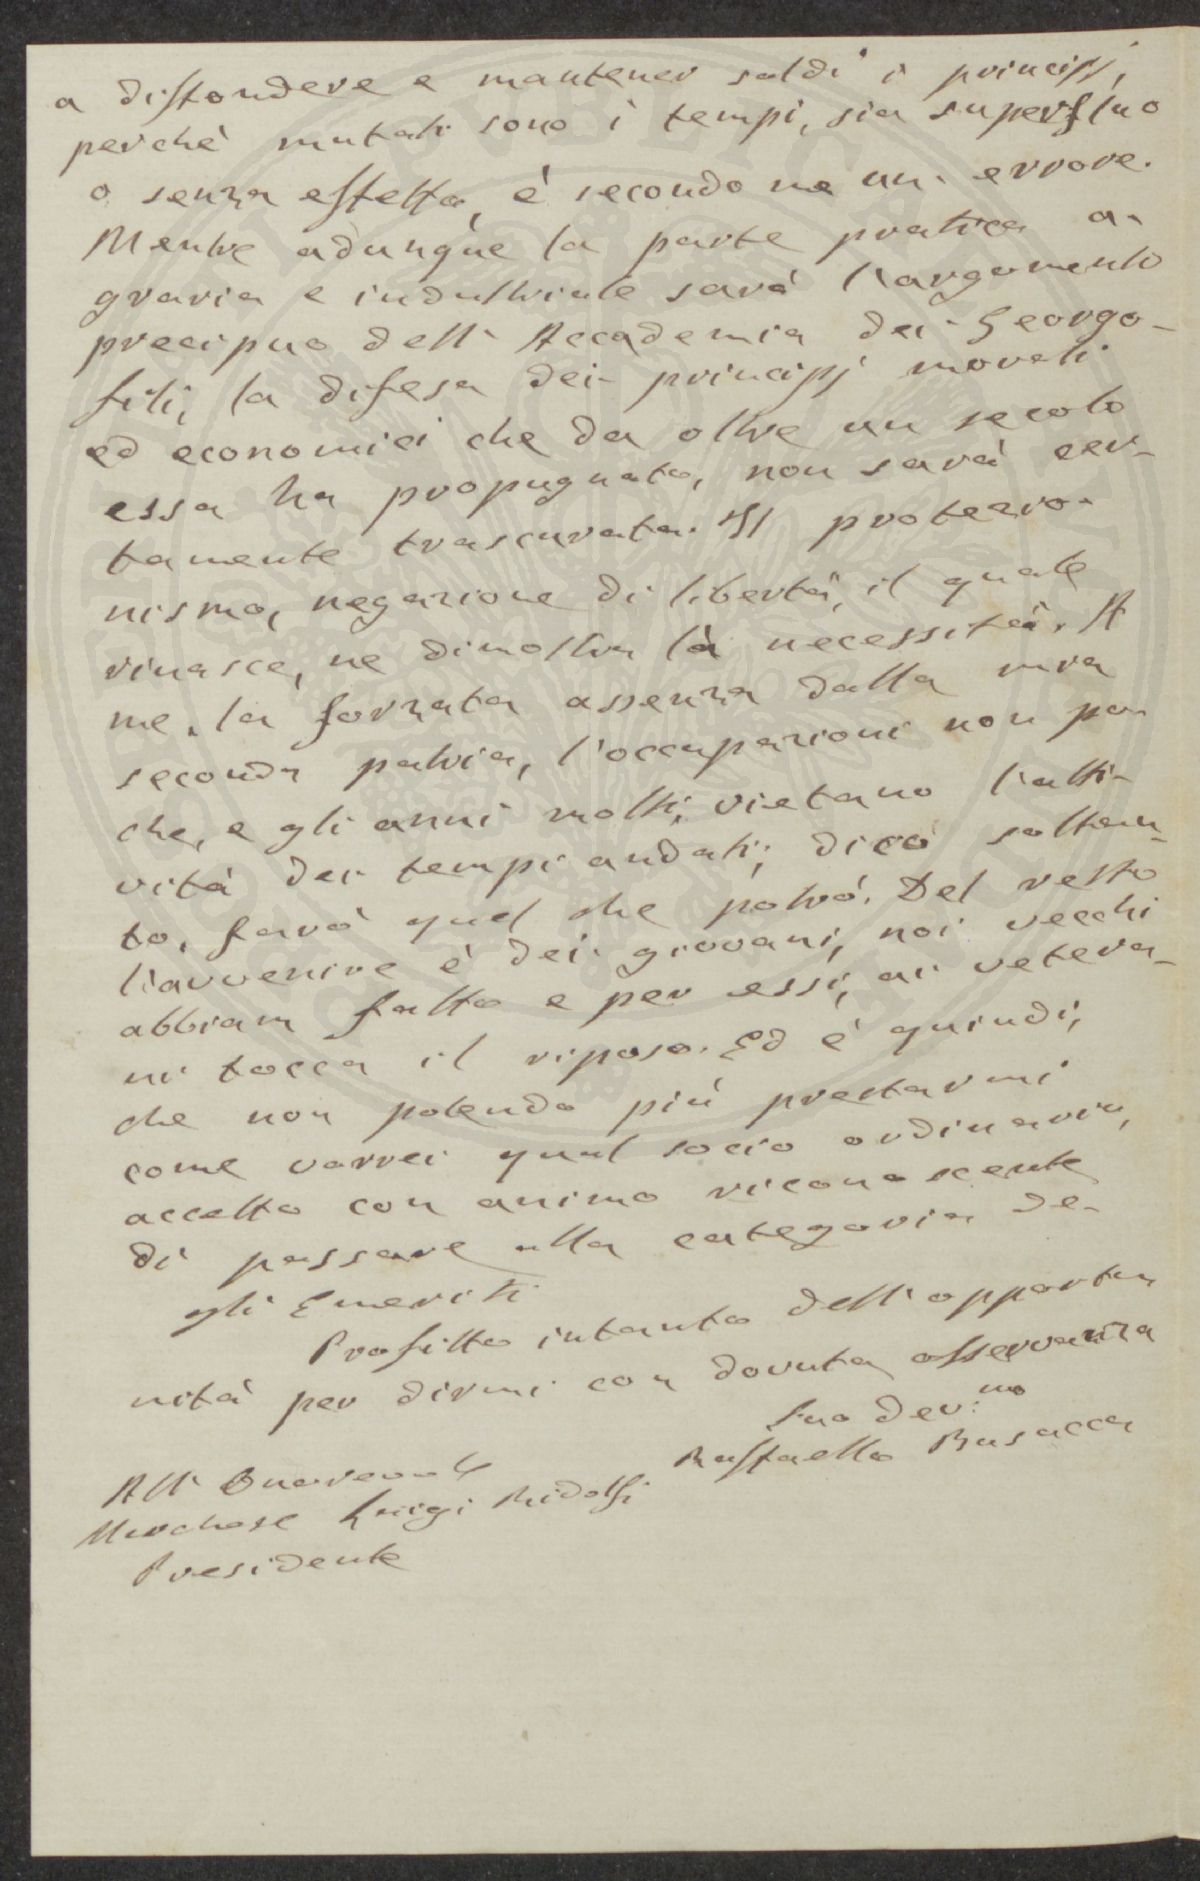 a diffondere e mantener saldi i principj,
perchè mutati sono i tempi, sia superfluo
o senza effetto, è secondo me un errore.
Mentre adunque la parte pratica a-
graria e industriale sarà l'argomento
precipuo dell'Accademia dei Georgo-
fili, la difesa dei principj morali
ed economici che da oltre un secolo
essa ha propugnato, non sarà cer-
tamente trascurata. Il protezio-
nismo, negazione di libertà, il quale
rinasce, ne dimostra la necessità. A
me, la forzata assenza dalla mia
seconda patria, l'occupazioni non po-
che, e gli anni molti, vietano l'atti-
vità dei tempi andati; dirò soltan-
to, farò quel che potrò. Del resto
l'avvenire è dei giovani, noi vecchi
abbiam fatto e per essi, ai vetera-
ni tocca il riposo. Ed è quindi,
che non potendo più prestarmi
come vorrei qual socio ordinario,
accetto con animo riconoscente
di passare alla categoria de-
gli Emeriti
Profitto intanto dell'opportu
nità per dirmi con dovuta osservanza
Suo dev:mo
Raffaello Busacca
All'Onorevole
Marchese Luigi Ridolfi
Presidente